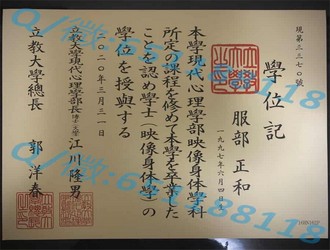 現第三三七〇號
學位記
服部正和
一九九七年六月四日
本學現代心理學部映像身体學科
所定の課程を修めて本學を卒業した
ことを認め學士（映像身体學）の
學位を授與する
二〇二〇年三月三一日
立教大學現代心理學部長
江川隆男
立教大學總長
郭洋春